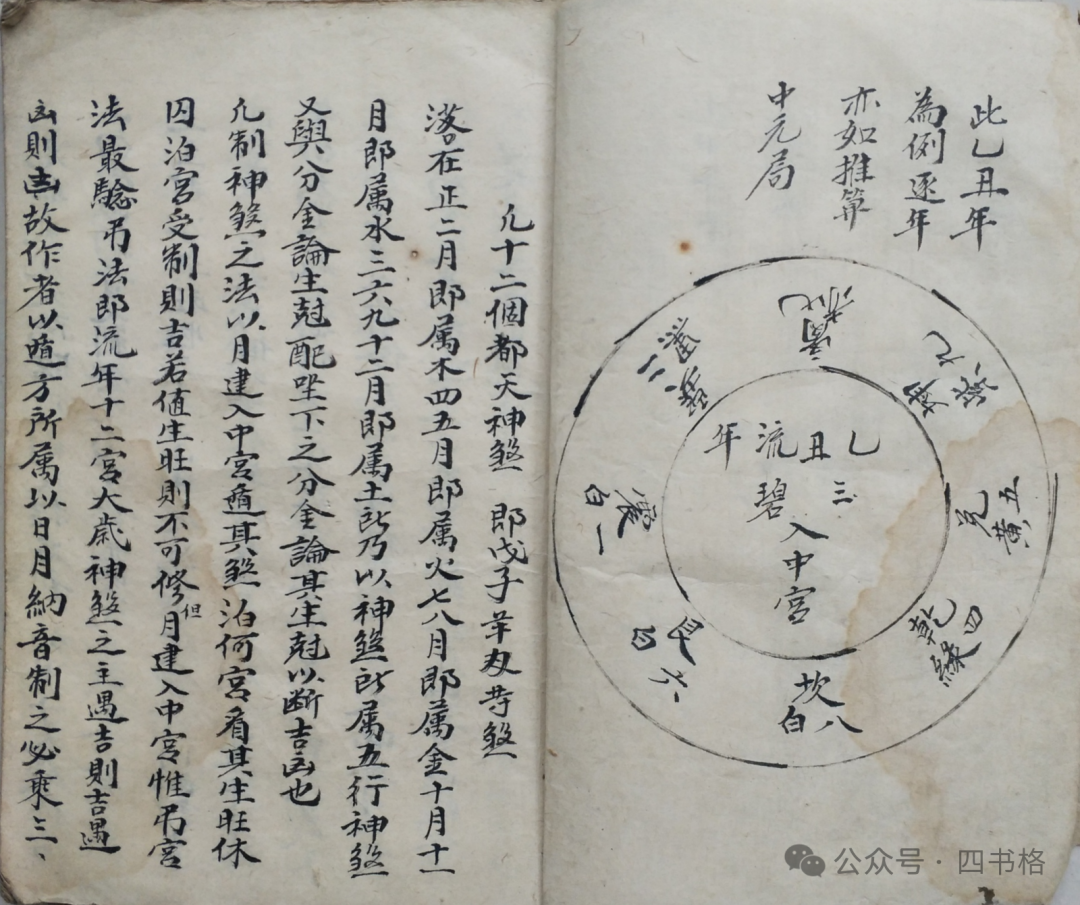 此乙丑年
為例逐年
亦如推算
中元局
乙丑流年
三碧入中宮
離七赤
坤九紫
兌五黃
乾四綠
坎八白
艮六白
震一白
巽二黑
凢十二個都天神煞　即戊子
煞
落在正二月即属木四五月即属火七八月即属金十月十一
月即属水三六九十二月即属土此乃以神煞所属五行神煞
又與分金論生尅配坐下之分金論其生尅以断吉凶也
凢制神煞之法以月建入中宮遁其煞泊何宮看其生旺休
囚泊宮受制則吉若值生旺則不可修但月建入中宮惟弔宮
法最驗弔法即流年十二宮大歲神煞之主遇吉則吉遇
凶則凶故作者以遁方所属以日月納音制之必乘三、
公众号·四书格